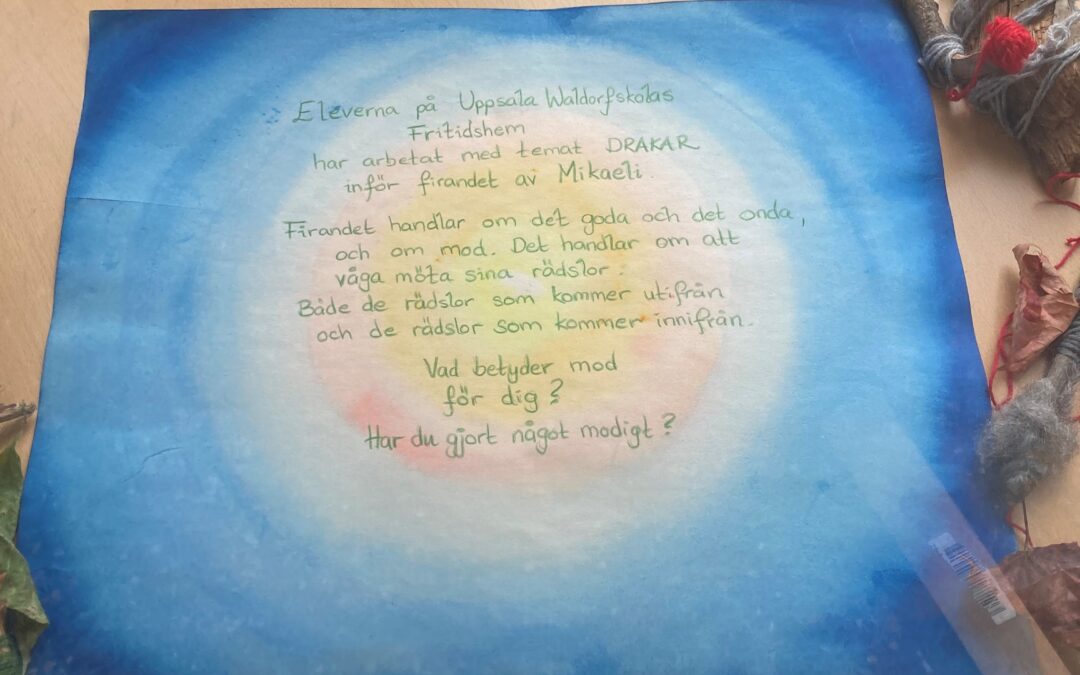 Eleverna på Uppsala Waldorfskolas
Fritidshem
har arbetat med temat DRAKAR
inför firandet av Mikaeli
Firandet handlar om det goda och det onda,
och om mod. Det handlar om att
våga möta sina rädslor.
Både de rädslor som kommer utifrån
och de rädslor som kommer innifrån.
Vad betyder mod
för dig?
Har du gjort något modigt?